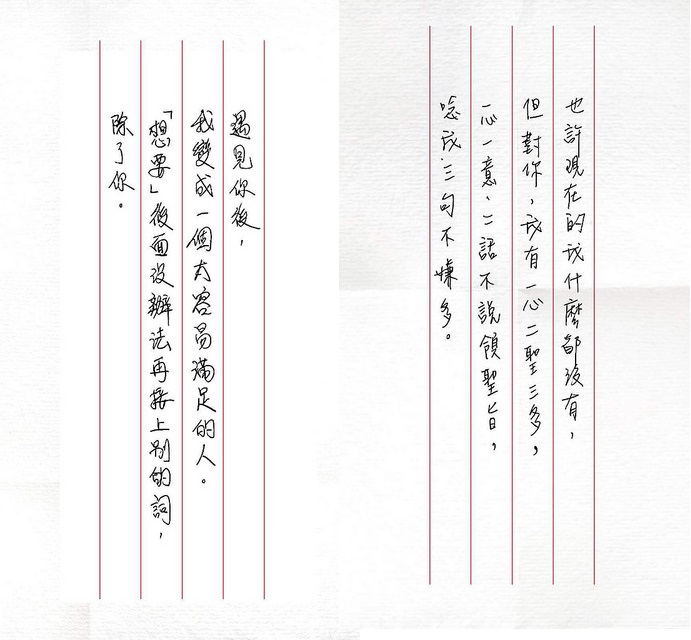 也許現在的我什麼都沒有，
但對你，我有一心二聖三多，
一心一意、二話不說領聖旨，
唸我、三句不嫌多。
遇見你後，
我變成一個太容易滿足的人。
「想要」後面沒辦法再接上別的詞，
除了你。